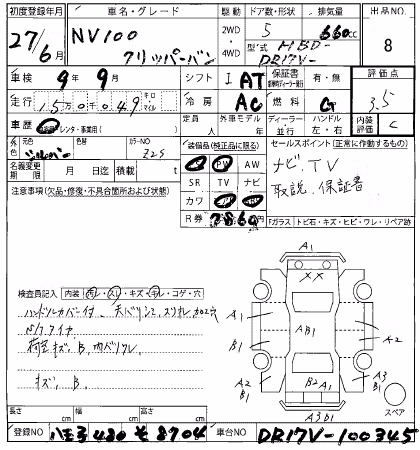 初度登録年月 車名・グレード 駆動 ドア数・形状 排気量 出品NO.
27/6 NV100 クリッパーバン 2WD 4WD 5 660cc 8
型式 HBD-DR17V-
車検 9年 9月 シフト I AT 保証書 有・無 評価点
走行 キロ マイル 冷房 AC 燃料 G 3.5
車歴 レンタ・事業用( ) 定員 人 外車モデル 年 ディーラー 並行 ハンドル 左・右 内装評価 C
外色 元色 シルバー 色替 カラーNO Z2S 装備品(純正品に限る) セールスポイント(正常に動作するもの)
名義変更期限 月 日迄 積載量 t PW AW ナビ、TV
注意事項(欠品・修復・不具合箇所および状態) SR TV ナビ 取説、保証書
カワ
R券 7860 Fガラス トビ石・キズ・ヒビ・ワレ・リペア跡
A1
XX
検査員記入 内装 汚レ・スレ・キズ・キレ・コゲ・穴
ハンドルカバー付
A1 AB1
荷室キズ、B、内バリワレ
B1 A2
キズ、B。
A2 B1 B2 A1 A3 B1
A3B1
スペア
長さ cm 幅 cm 高さ cm
登録NO 八王子 480 そ 8704 車台NO DR17V-100345